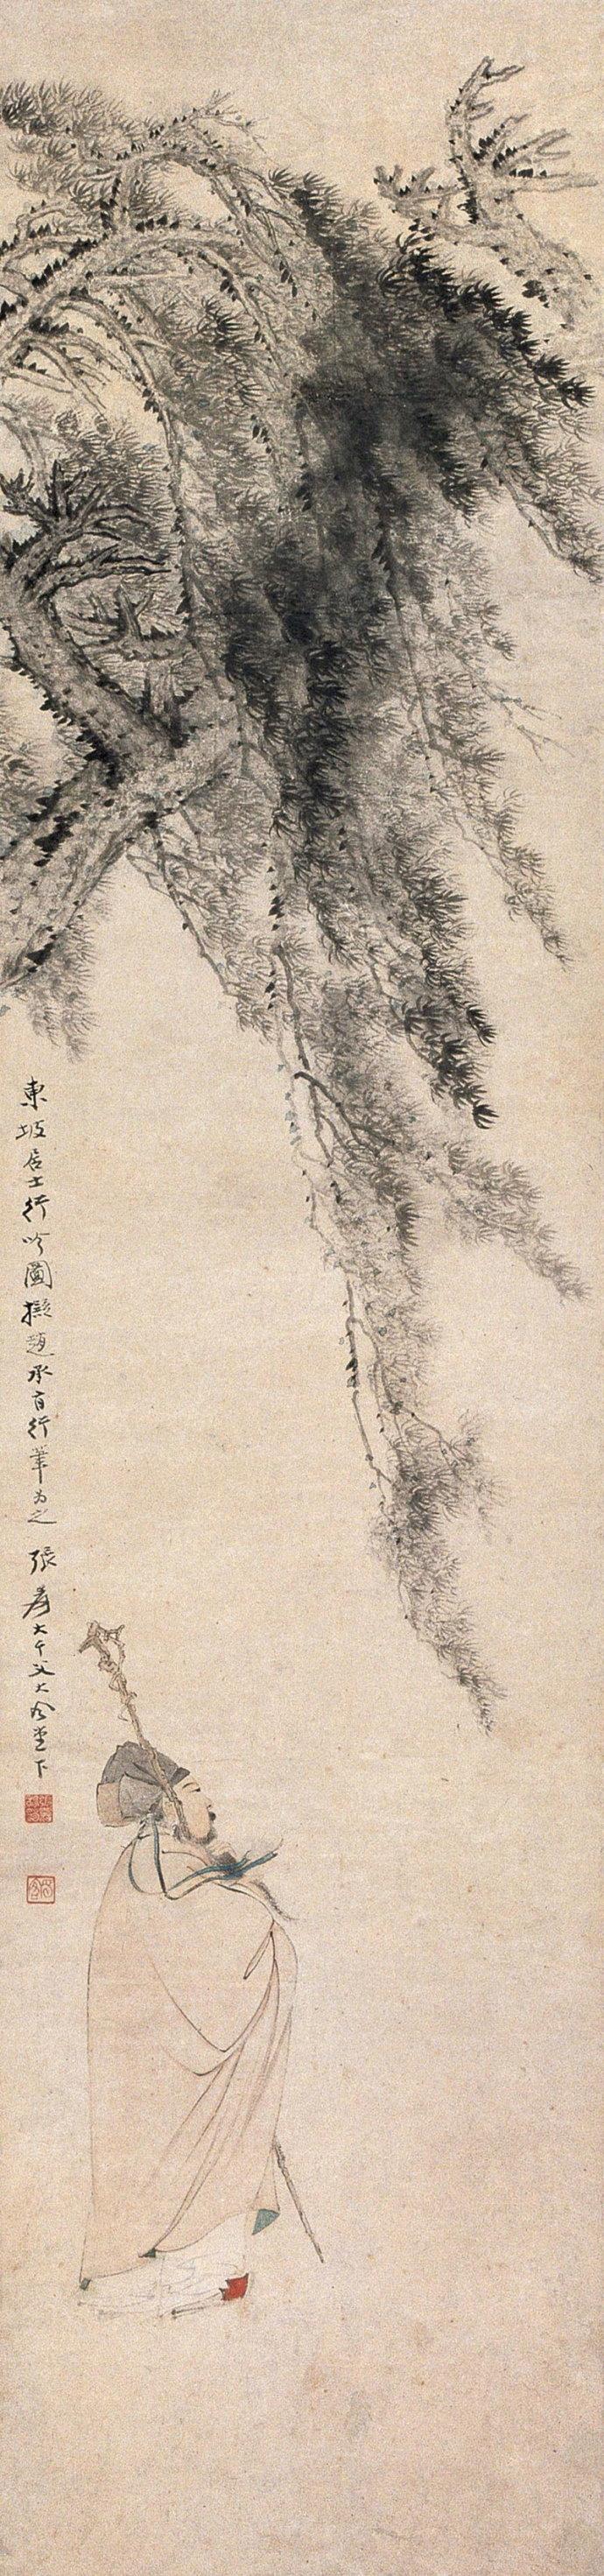 東坡居士行吟圖擬趙承旨行筆為之 張爰大千父大風堂下